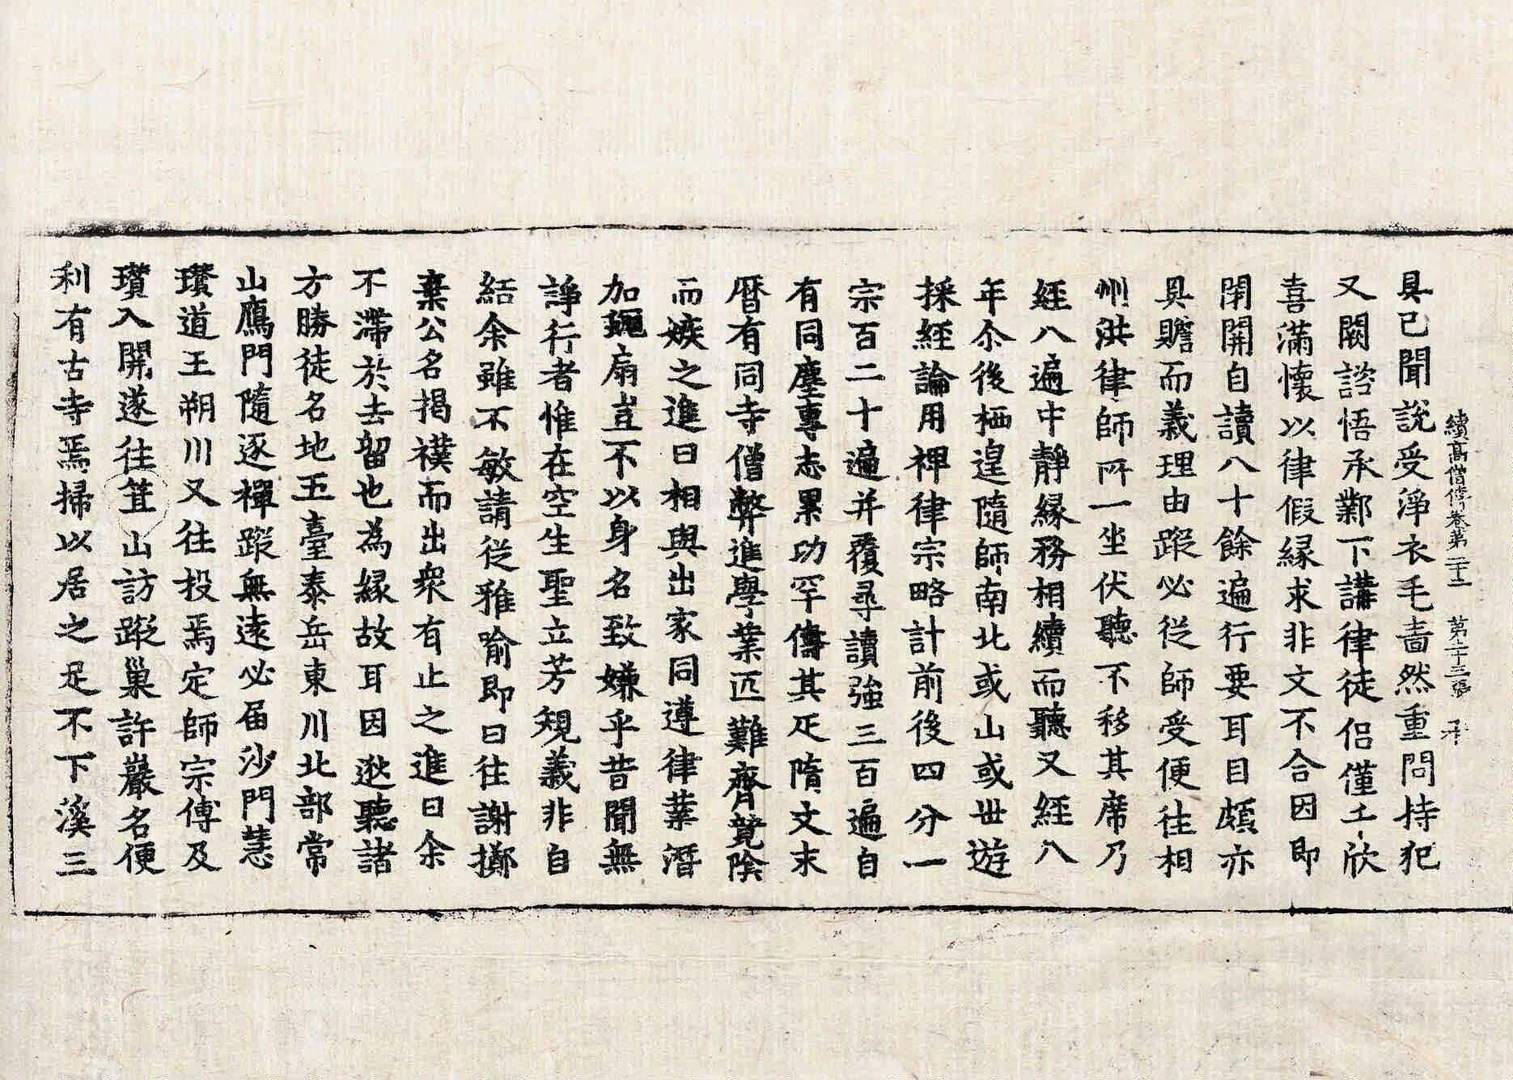 續高僧傳卷第二十二 第二十三張 承
具已聞說受淨衣毛啬然重問持犯
又闕諮悟承鄴下講律徒侶僅壬欣
喜滿懷以律假緣求非文不合因即
閇開自讀八十餘遍行要耳目頗亦
具贍而義理由蹤必從師受便往相
州洪律師所一坐伏聽不移其席乃
經八遍中靜緣務相續而聽又經八
年尒後栖遑隨師南北或山或世遊
採經論用裨律宗略計前後四分一
宗百二十遍并覆尋讀強三百遍自
有同塵專志累功罕儔其疋隋文末
曆有同寺僧弊進學業匹難齊競陰
而嫉之進曰相與出家同遵律業潛
加扇豈不以身名致嫌乎昔聞無
諍行者惟在空生聖立芳規義非自
結余雖不敏請從雅喻即日往謝擲
棄公名揭襆而出衆有止之進曰余
不滯於去留也為緣故耳因逖聽諸
方勝徒名地五臺泰岳東川北部常
山鴈門隨逐禪蹤無遠必届沙門慧
瓚道王朔川又往投焉定師宗傅及
瓚入開遂往箕山訪蹤巢許巖名便
利有古寺焉掃以居之足不下溪三